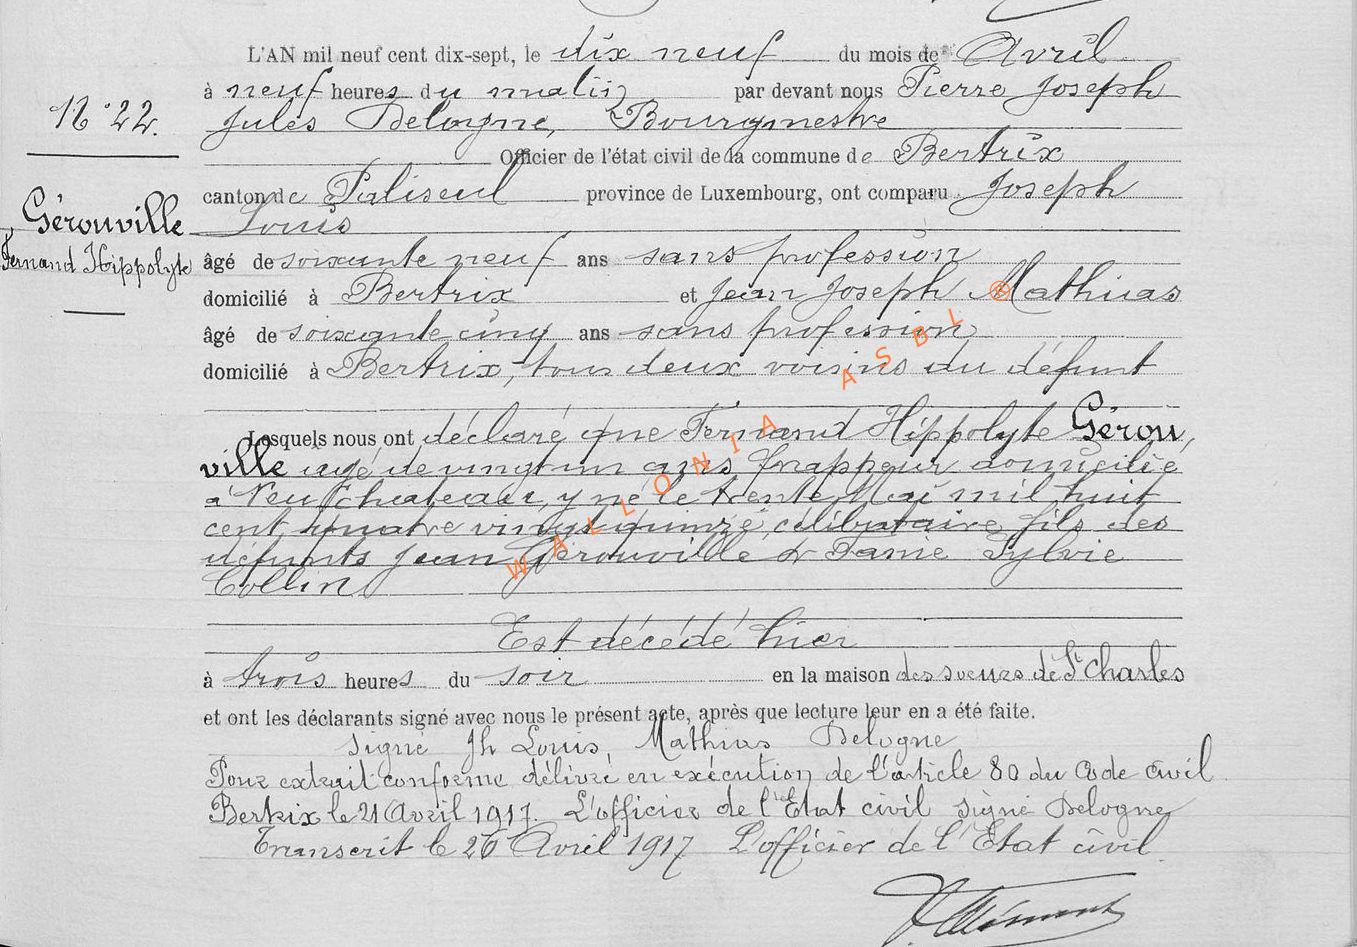 L'AN mil neuf cent dix-sept, le dix neuf du mois de Avril
à neuf heures du matin par devant nous Pierre Joseph
N° 22.
Jules Delogne, Bourgmestre
Officier de l'état civil de la commune de Bertrix
canton de Paliseul province de Luxembourg, ont comparu Joseph
Gérouville
Louis
Fernand Hippolyte
âgé de soixante neuf ans sans profession
domicilié à Bertrix et Jean Joseph Mathias
âgé de soixante cinq ans sans profession
domicilié à Bertrix, tous deux voisins du défunt
Lesquels nous ont déclaré que Fernand Hippolyte Gérou,
ville âgé de vingt un ans frappeur domicilié
à Neufchateau, y né le trente Mai mil huit
cent quatre vingt quinze, célibataire fils des
défunts Jean Gérouville & Sylvie
Collin
Est décédé hier
à trois heures du soir en la maison des soeurs de St Charles
et ont les déclarants signé avec nous le présent acte, après que lecture leur en a été faite.
Signé Jh Louis, Mathias Delogne
Pour extrait conforme délivré en exécution de l'article 80 du Code civil
Bertrix le 21 Avril 1917. L'officier de l'Etat civil signé Delogne
Transcrit le 26 Avril 1917 L'officier de l'Etat civil.
WALLONIA ASBL ®